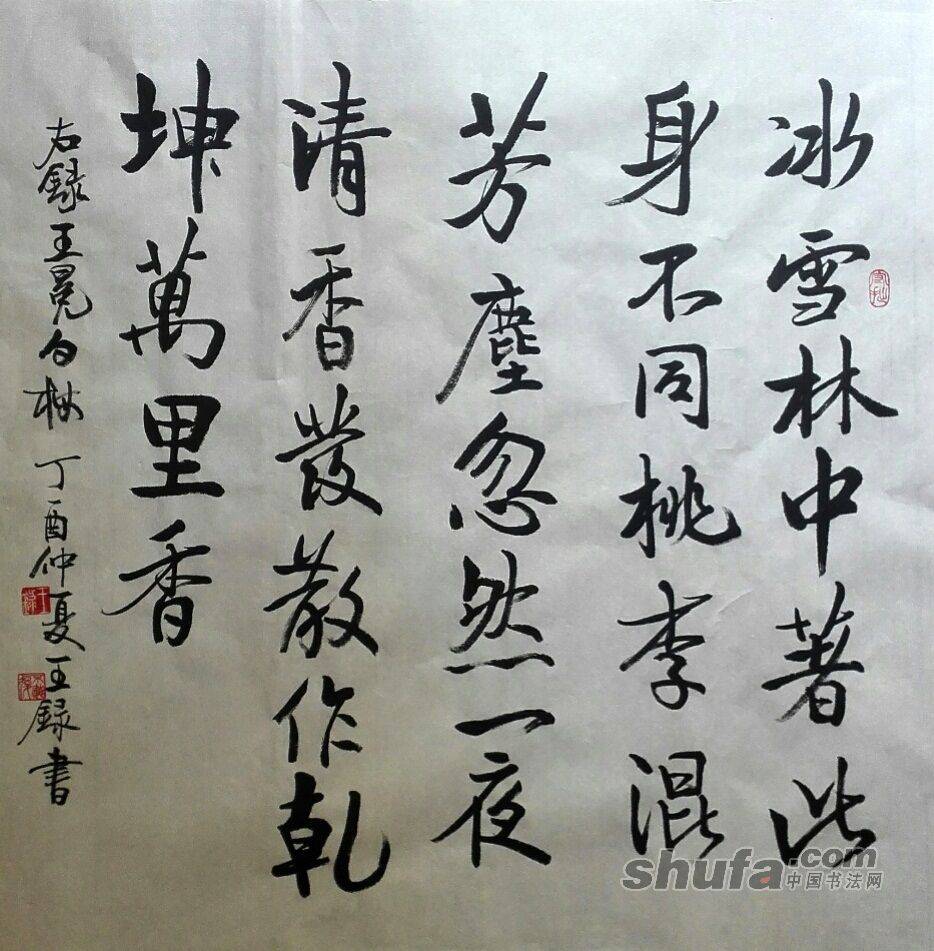 冰雪林中著此
身不同桃李混
芳塵忽然一夜
清香發散作乾
坤萬里香
右録王冕白梅 丁酉仲夏王録書
shufa.com
中国书法网